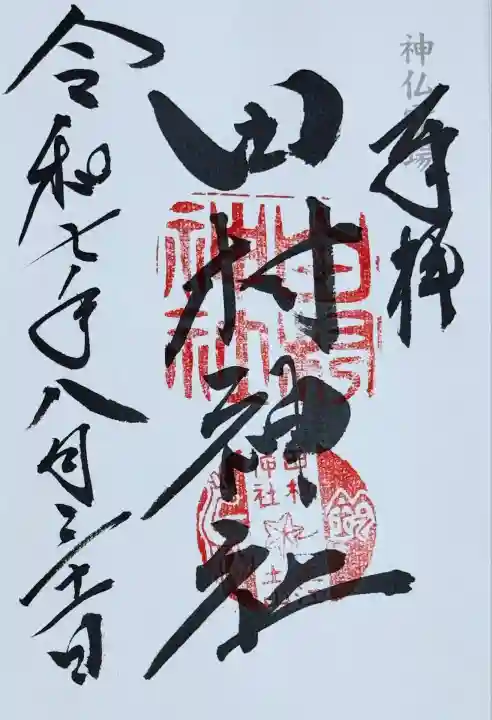 奉拝
神仏霊場
田村神社
令和七年八月三十一日
田村
神社